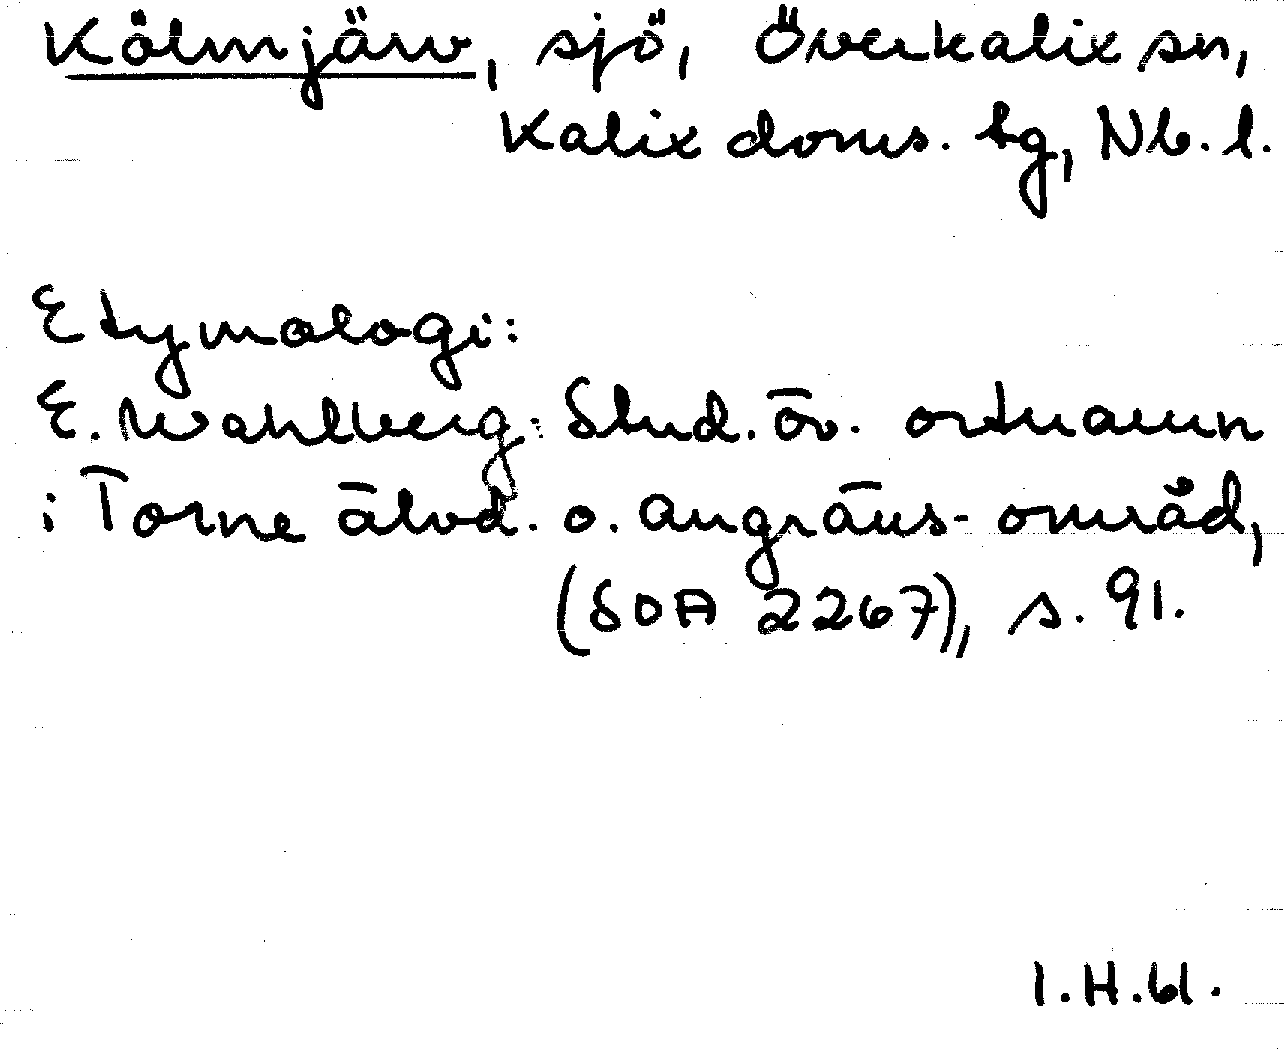 Kölmjärv, sjö, Överkalix sn,
Kalix doms. tg, Nb. l.
Etymologi:
E. Wahlberg: Stud. öv. ortnamn
i Torne älvd. o. angräns- område,
(SOA 2267), s. 91.
I.H.61.